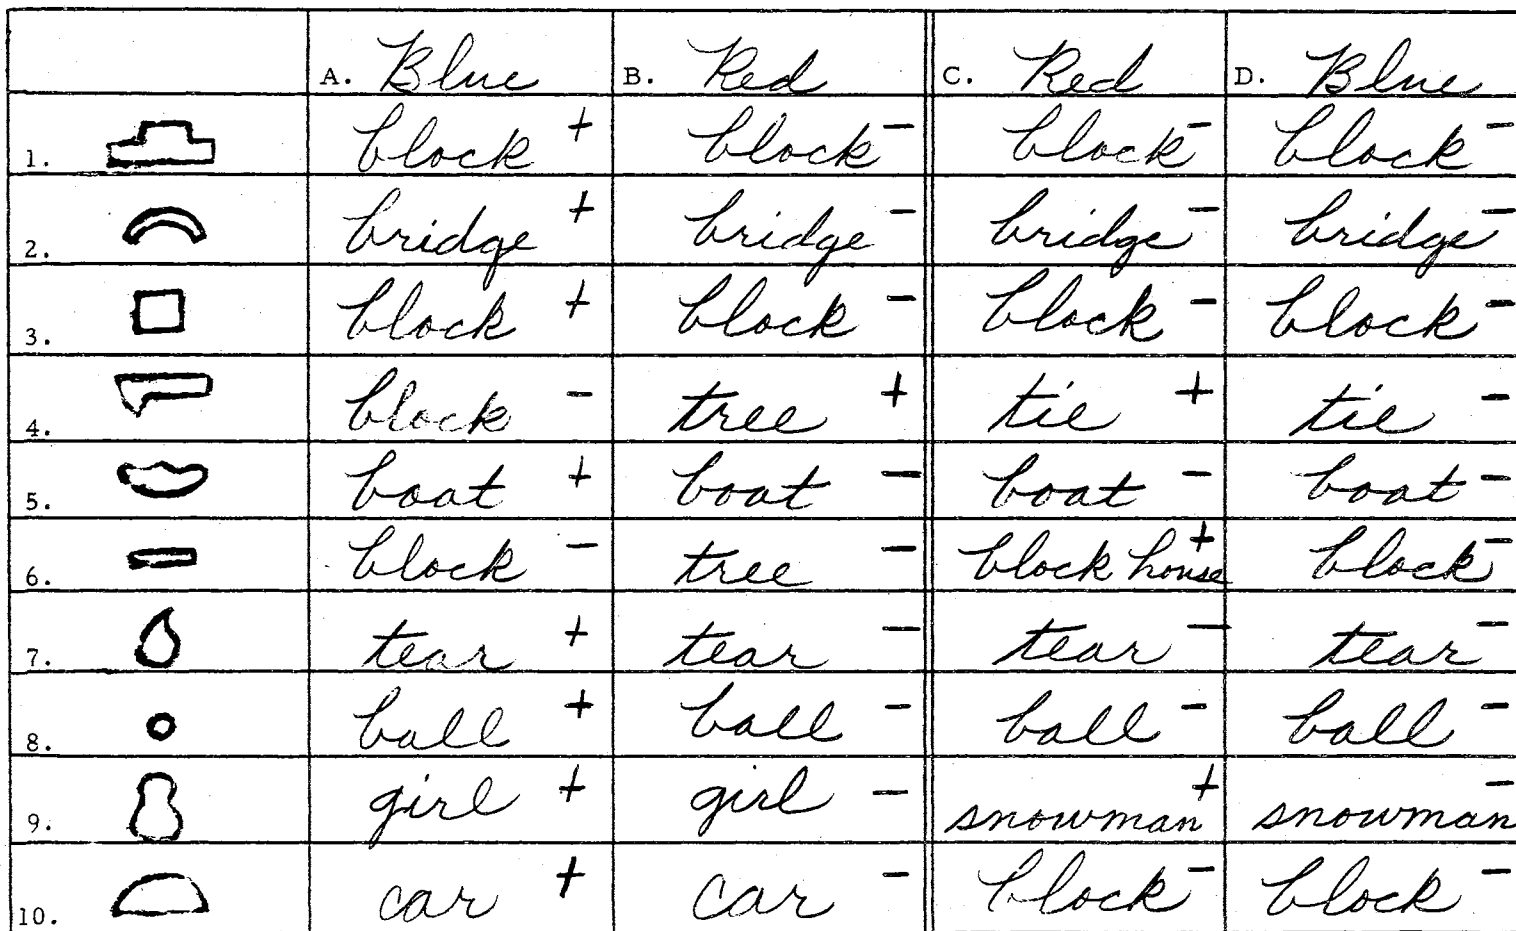 A. Blue B. Red C. Red D. Blue
1. block + block - block - block -
2. bridge + bridge - bridge - bridge -
3. block + block - block - block -
4. block - tree + tie + tie -
5. boat + boat - boat - boat -
6. block - tree - block house + block -
7. tear + tear - tear - tear -
8. ball + ball - ball - ball -
9. girl + girl - snowman + snowman -
10. car + car - block - block -